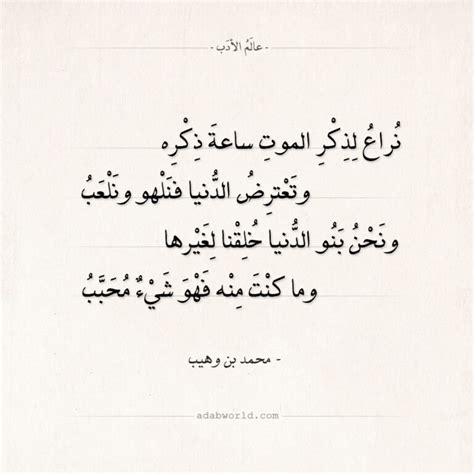 - عالَمُ الأدَب -
نُراعُ لِذِكْرِ الموتِ ساعةَ ذِكْرِه
وتَعْترِضُ الدُّنيا فنَلْهو ونَلْعَبُ
ونَحْنُ بَنُو الدُّنيا خُلِقْنا لِغَيْرِها
وما كنْتَ مِنْه فَهْوَ شَيْءٌ مُحَبَّبُ
- محمد بن وهيب
adabworld.com